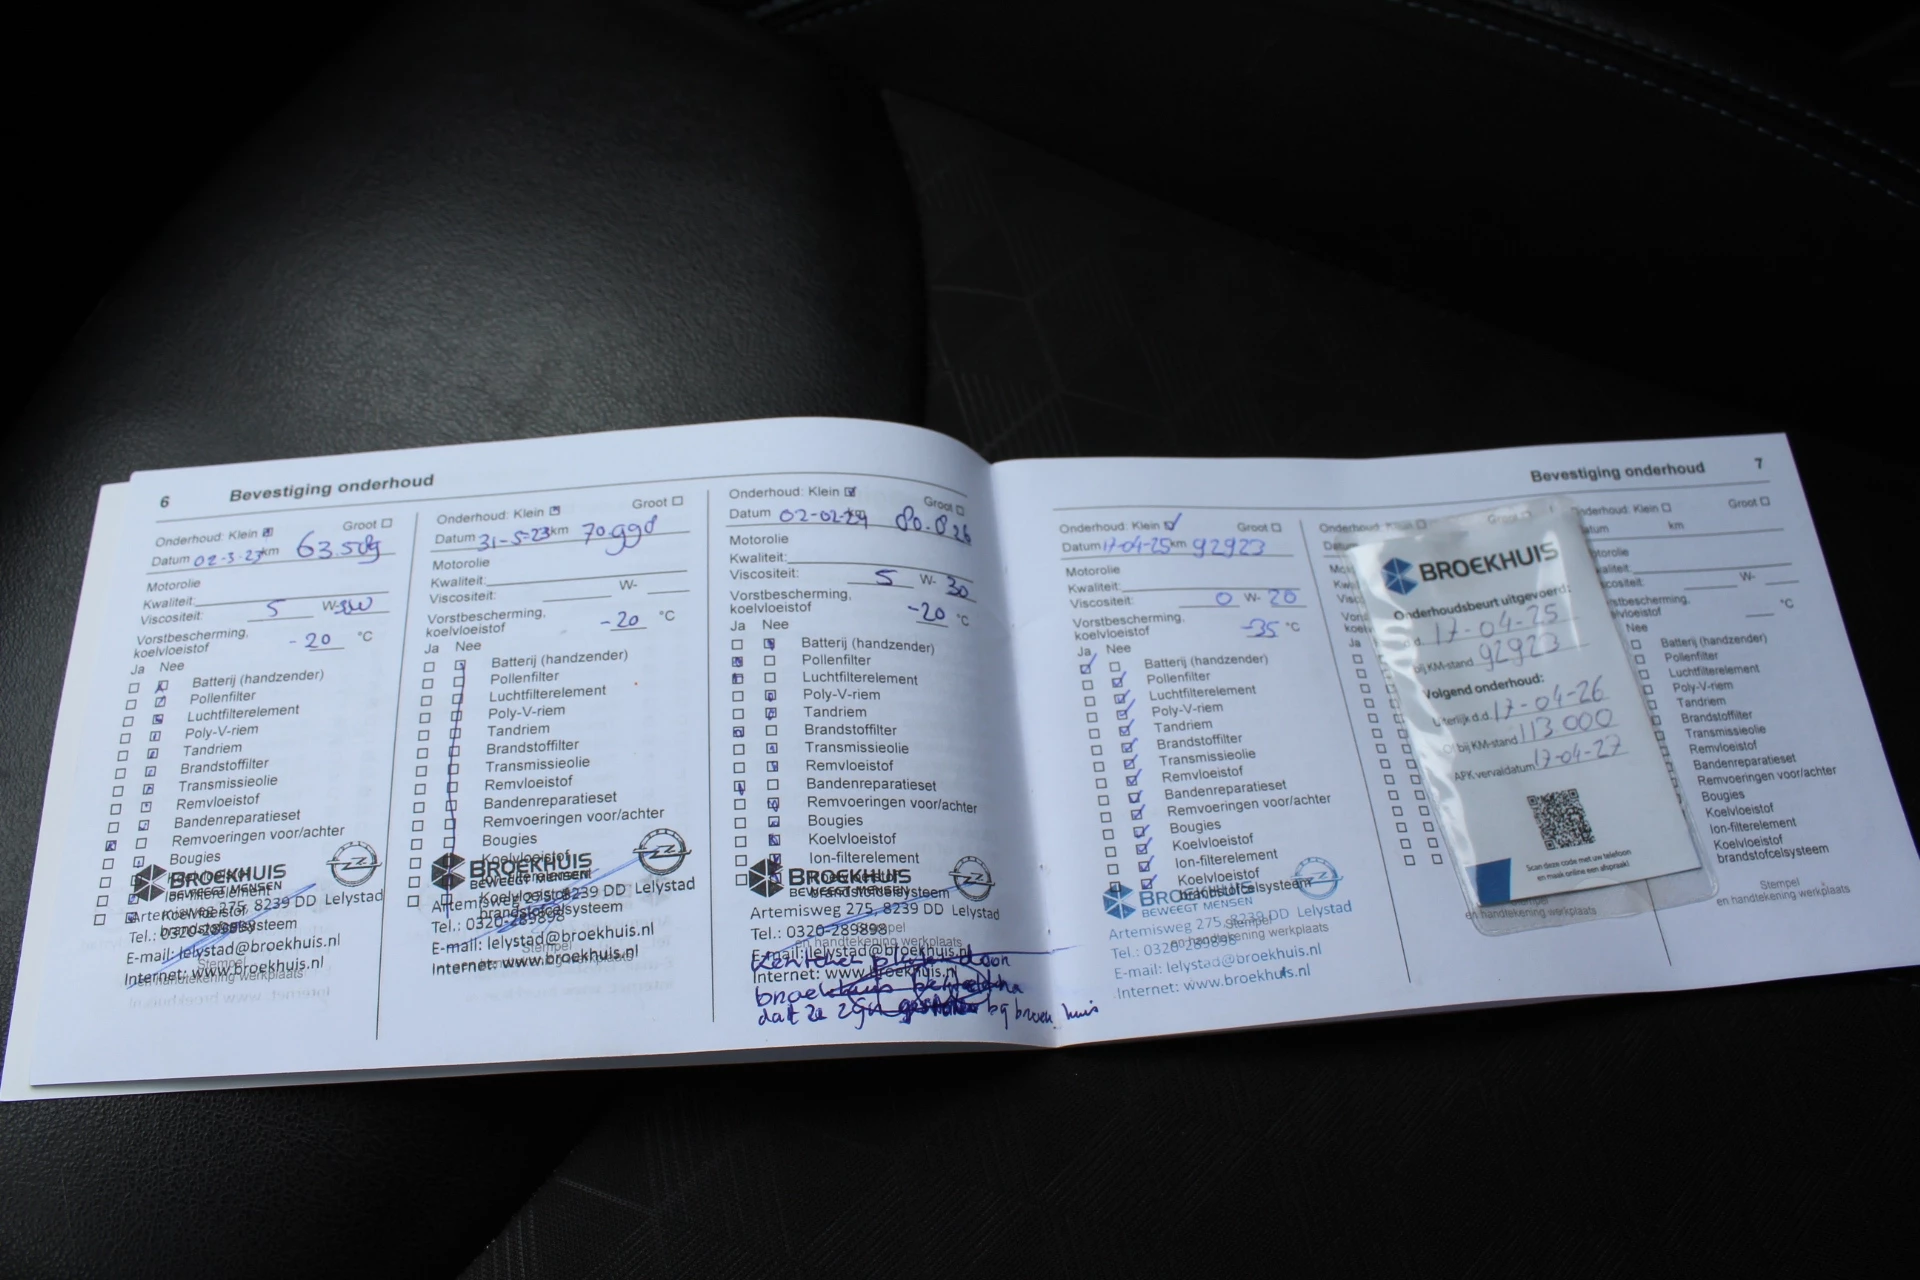 6 Bevestiging onderhoud
Onderhoud: Klein Groot
Datum 02-3-23 km 63.509
Motorolie
Kwaliteit:
Viscositeit: 5 W-
Vorstbescherming,
koelvloeistof -20 °C
Ja Nee
Batterij (handzender)
Pollenfilter
Luchtfilterelement
Poly-V-riem
Tandriem
Brandstoffilter
Transmissieolie
Remvloeistof
Bandenreparatieset
Remvoeringen voor/achter
Bougies
Ion-filterelement
Koelvloeistof
brandstofcelsysteem
BROEKHUIS
BEWEEGT MENSEN
Artemisweg 275, 8239 DD Lelystad
Tel.: 0320-289898
E-mail: lelystad@broekhuis.nl
Internet: www.broekhuis.nl
Stempel
en handtekening werkplaats
Onderhoud: Klein Groot
Datum 31-5-23 km 70.990
Motorolie
Kwaliteit:
Viscositeit: W-
Vorstbescherming,
koelvloeistof -20 °C
Ja Nee
Batterij (handzender)
Pollenfilter
Luchtfilterelement
Poly-V-riem
Tandriem
Brandstoffilter
Transmissieolie
Remvloeistof
Bandenreparatieset
Remvoeringen voor/achter
Bougies
Koelvloeistof
Ion-filterelement
Koelvloeistof
brandstofcelsysteem
BROEKHUIS
BEWEEGT MENSEN
Artemisweg 275, 8239 DD Lelystad
Tel.: 0320-289898
E-mail: lelystad@broekhuis.nl
Internet: www.broekhuis.nl
Stempel
en handtekening werkplaats
Onderhoud: Klein Groot
Datum 02-02-24 km 80.826
Motorolie
Kwaliteit:
Viscositeit: 5 W- 30
Vorstbescherming,
koelvloeistof -20 °C
Ja Nee
Batterij (handzender)
Pollenfilter
Luchtfilterelement
Poly-V-riem
Tandriem
Brandstoffilter
Transmissieolie
Remvloeistof
Bandenreparatieset
Remvoeringen voor/achter
Bougies
Koelvloeistof
Ion-filterelement
Koelvloeistof
brandstofcelsysteem
BROEKHUIS
BEWEEGT MENSEN
Artemisweg 275, 8239 DD Lelystad
Tel.: 0320-289898
Stempel
en handtekening werkplaats
E-mail: lelystad@broekhuis.nl
Internet: www.broekhuis.nl
door
broekhuis
dat ze zijn bij broekhuis
Bevestiging onderhoud 7
Onderhoud: Klein Groot
Datum 17-04-25 km 92923
Motorolie
Kwaliteit:
Viscositeit: 0 W- 20
Vorstbescherming,
koelvloeistof -35 °C
Ja Nee
Batterij (handzender)
Pollenfilter
Luchtfilterelement
Poly-V-riem
Tandriem
Brandstoffilter
Transmissieolie
Remvloeistof
Bandenreparatieset
Remvoeringen voor/achter
Bougies
Koelvloeistof
Ion-filterelement
Koelvloeistof
brandstofcelsysteem
BROEKHUIS
BEWEEGT MENSEN
Artemisweg 275, 8239 DD Lelystad
Stempel
Tel.: 0320-289898
en handtekening werkplaats
E-mail: lelystad@broekhuis.nl
Internet: www.broekhuis.nl
Onderhoud: Klein Groot
Ja
BROEKHUIS
Onderhoudsbeurt uitgevoerd:
d.d. 17-04-25
bij KM-stand 92923
Volgend onderhoud:
Uiterlijk d.d. 17-04-26
Of bij KM-stand 113.000
APK vervaldatum 17-04-27
Scan deze code met uw telefoon
en maak online een afspraak!
en handtekening werkplaats
Onderhoud: Klein Groot
Datum km
Motorolie
Kwaliteit:
Viscositeit: W-
Vorstbescherming,
koelvloeistof °C
Nee
Batterij (handzender)
Pollenfilter
Luchtfilterelement
Poly-V-riem
Tandriem
Brandstoffilter
Transmissieolie
Remvloeistof
Bandenreparatieset
Remvoeringen voor/achter
Bougies
Koelvloeistof
Ion-filterelement
Koelvloeistof
brandstofcelsysteem
Stempel
en handtekening werkplaats